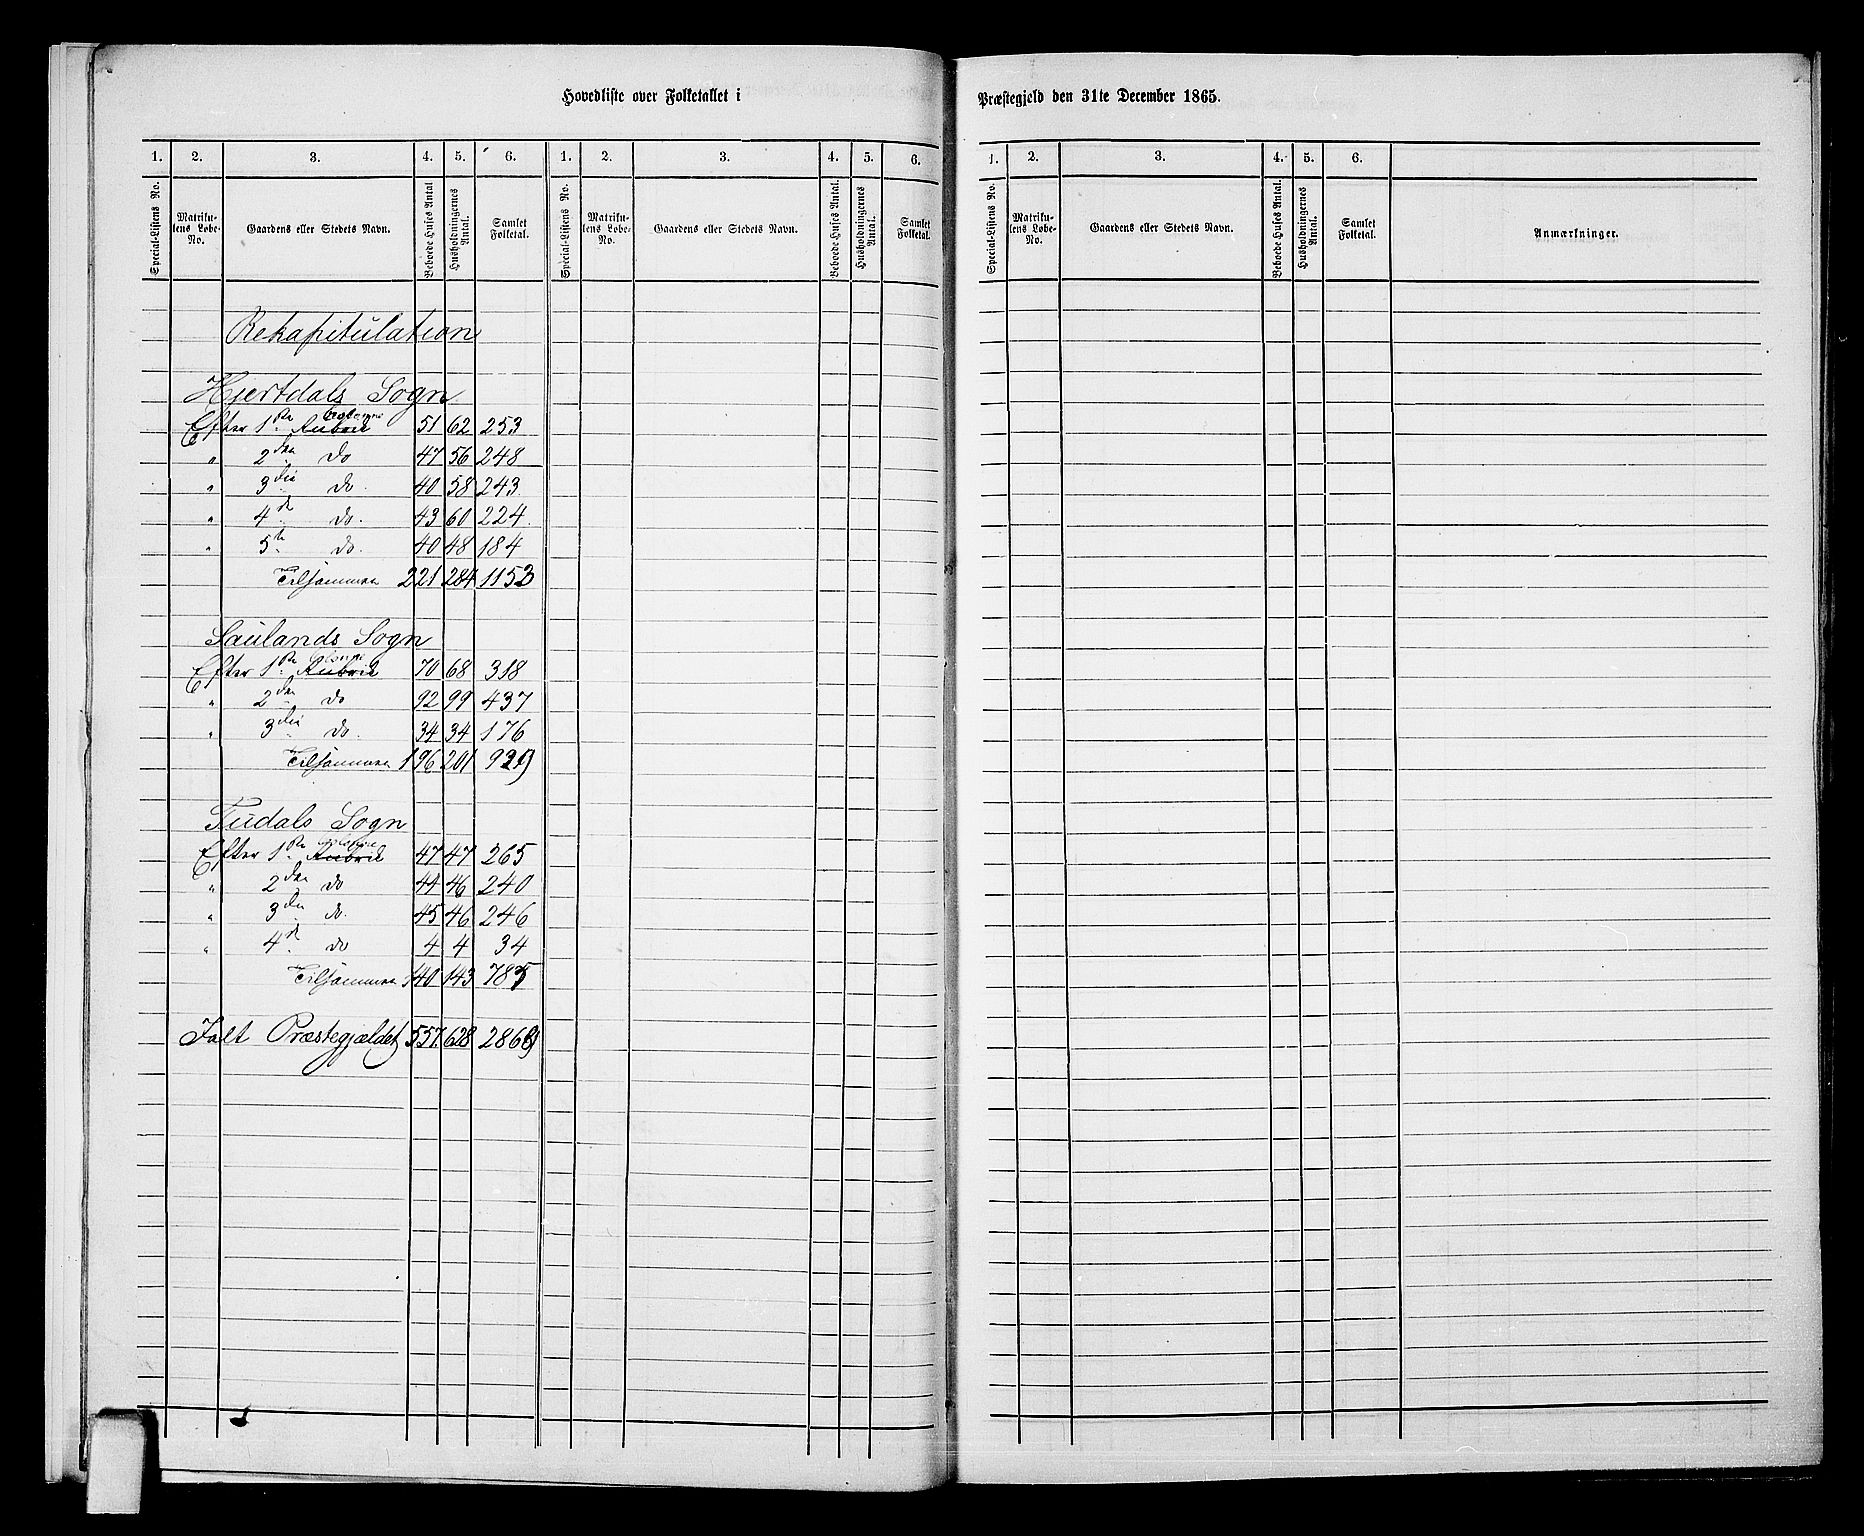 Hovedliste over Folketallet i Præstegjeld den 31te December 1865.
1. 2. 3. 4. 5. 6. 1. 2. 3. 4. 5. 6.
Special-Listens No. Matrikulens Løbe-No. Gaardens eller Stedets Navn. Beboede Huses Antal Husholdningernes Antal. Samlet Folketal. Special-Listens No. Matrikulens Løbe-No. Gaardens eller Stedets Navn. Beboede Huses Antal. Husholdningernes Antal. Samlet Folketal.
1. 2. 3. 4. 5. 6.
Special-Listens No. Matrikulens Løbe-No. Gaardens eller Stedets Navn. Beboede Huses Antal. Husholdningernes Antal. Samlet Folketal. Anmærkninger.
Rekapitulation
Hjertdals Sogn
Efter 1ste Rubrik 51 62 253
" 2den do 47 56 248
" 3die do. 40 58 243.
" 4de do. 43 60 224.
" 5te do. 40 48 184
Tilsammen 221 284 1152
Saulands Sogn
Efter 1ste Rubrik 70 68 318
" 2den do 92 99 437
" 3die do. 34 34 176
Tilsammen 196 201 931
Tudals Sogn
Efter 1ste Rubrik 47 47 265
" 2den do 44 46 240
" 3die do. 45 46 246
" 4de do 4 4 34
Tilsammen 140 143 785
Ialt Præstegjældet 557. 628